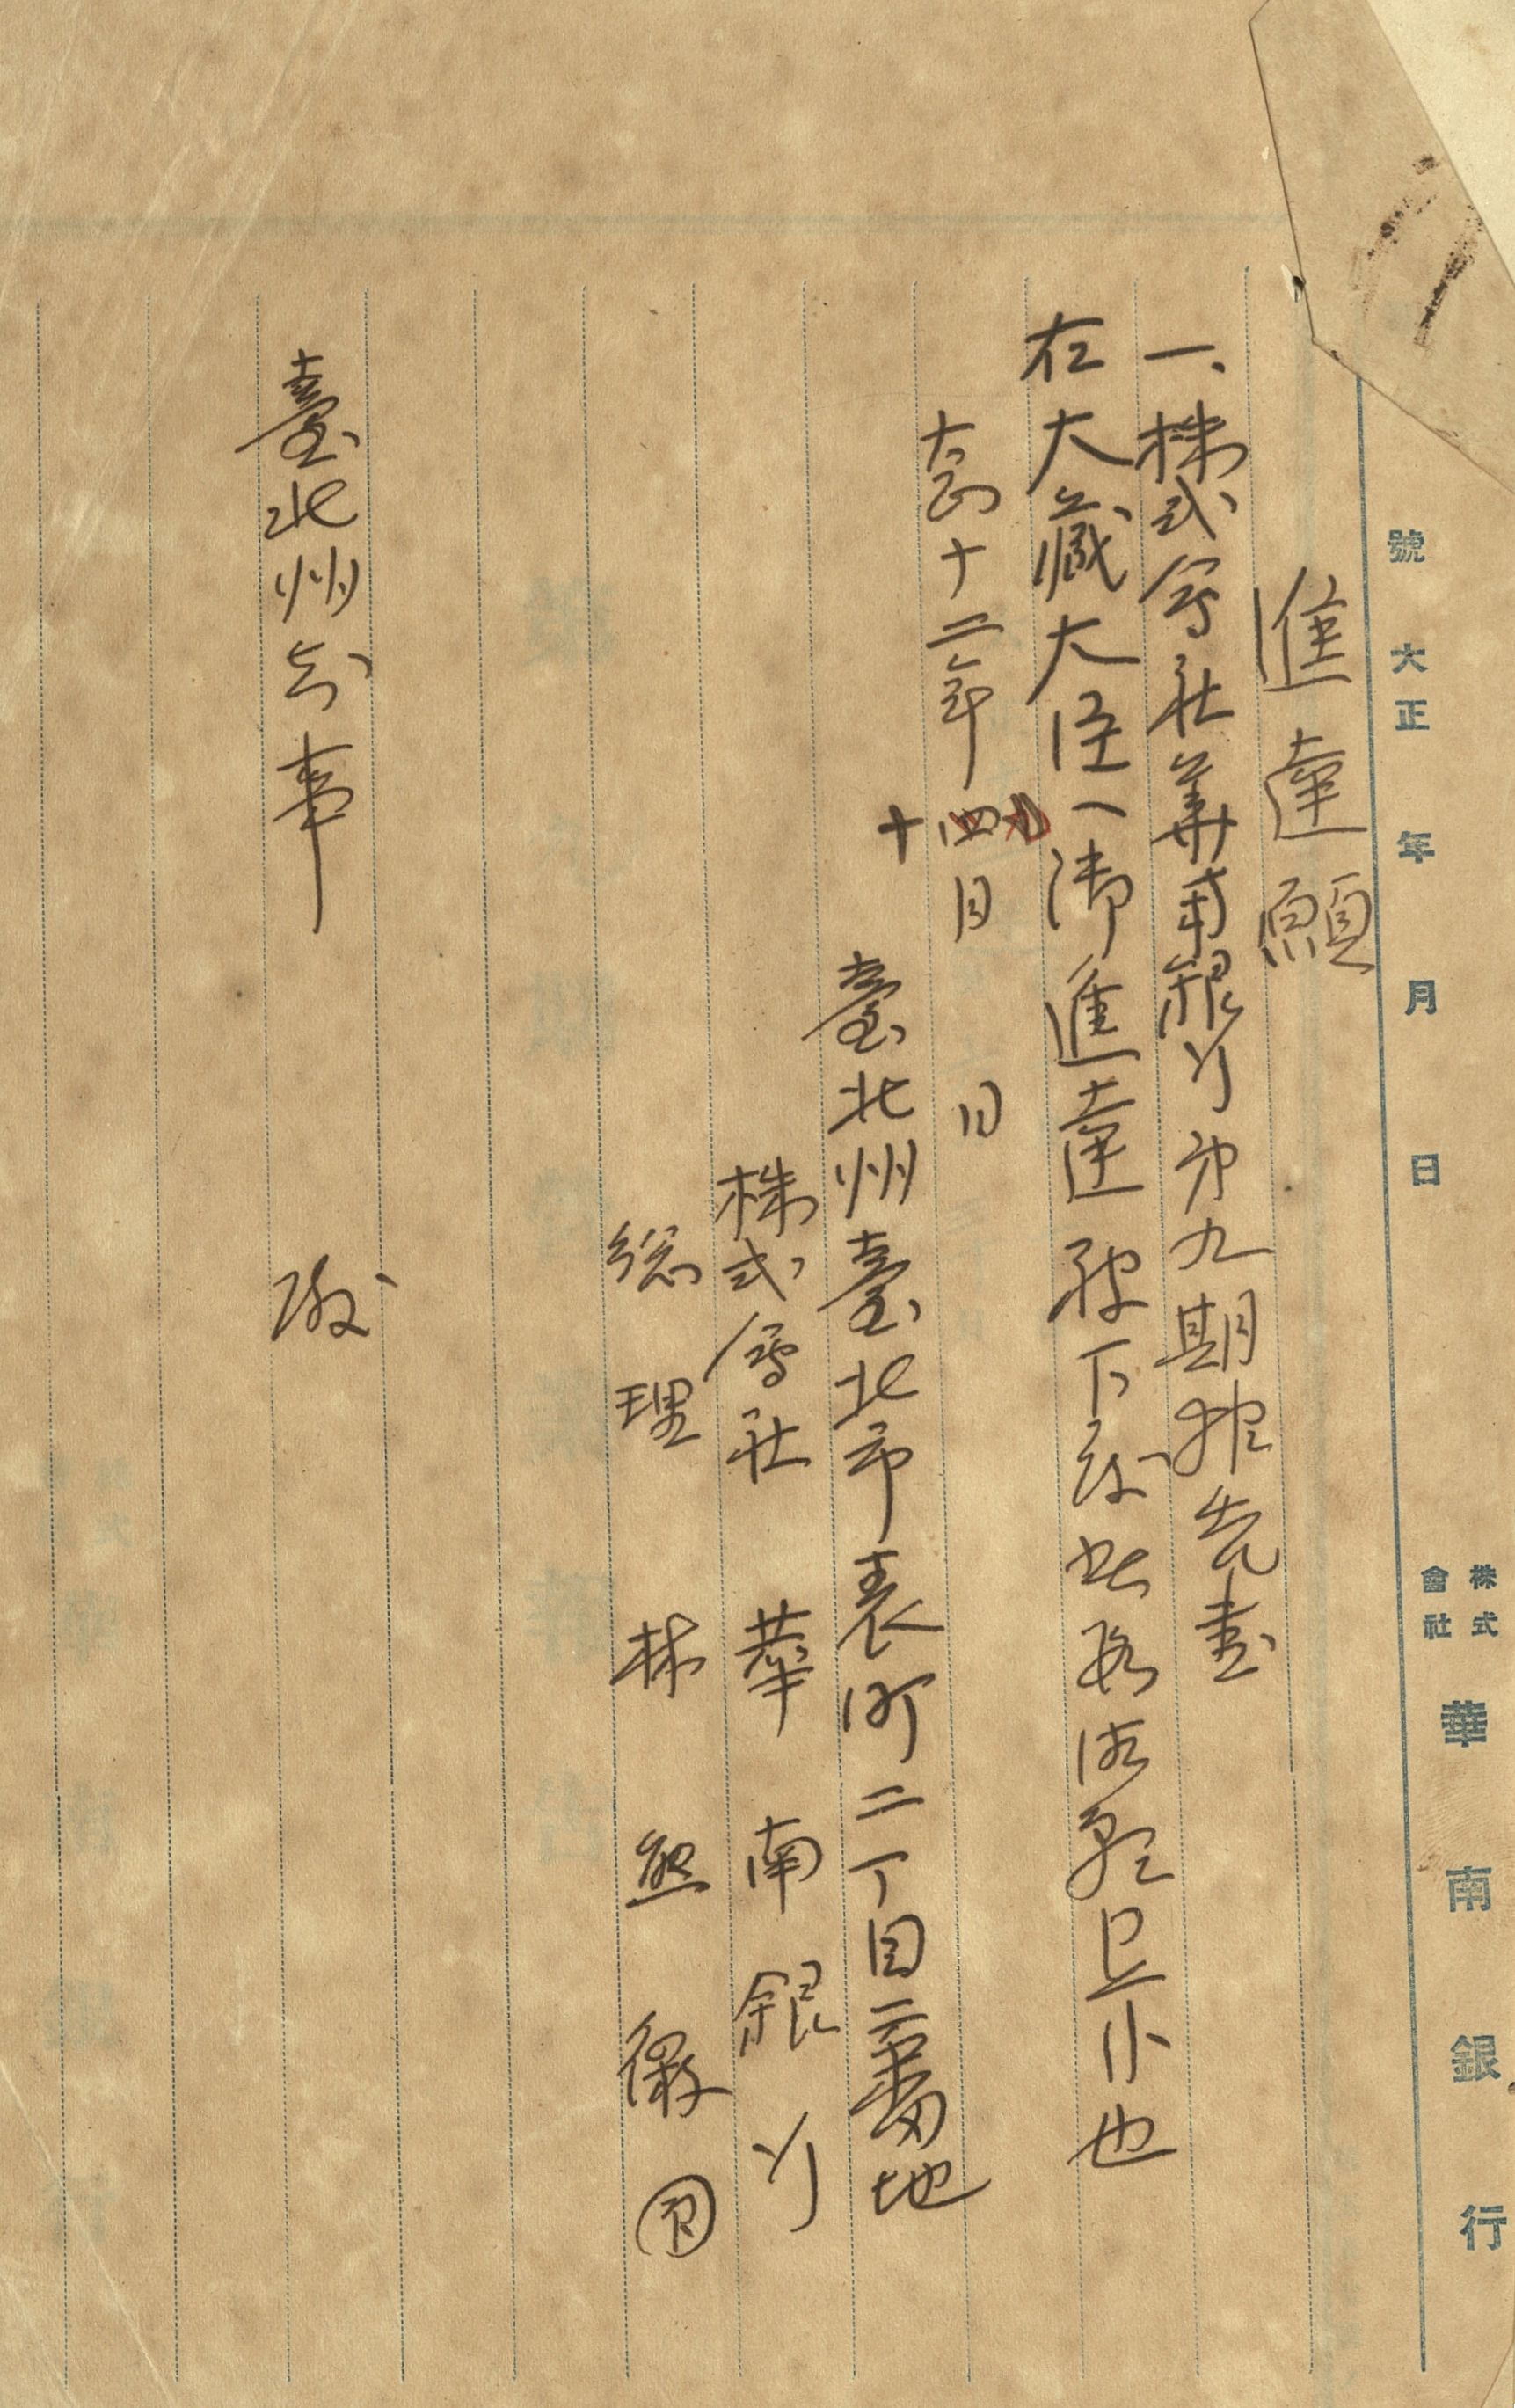 號 大正 年 月 日 株式會社 華南銀行
進達願
一、株式会社華南銀行第九期報告書
右大蔵大臣ヘ御進達被下度此段御願上候也
大正十二年十月 日
臺北州臺北市表町二丁目二番地
株式会社 華南銀行
総理 林熊徴 印
臺北州知事 殿